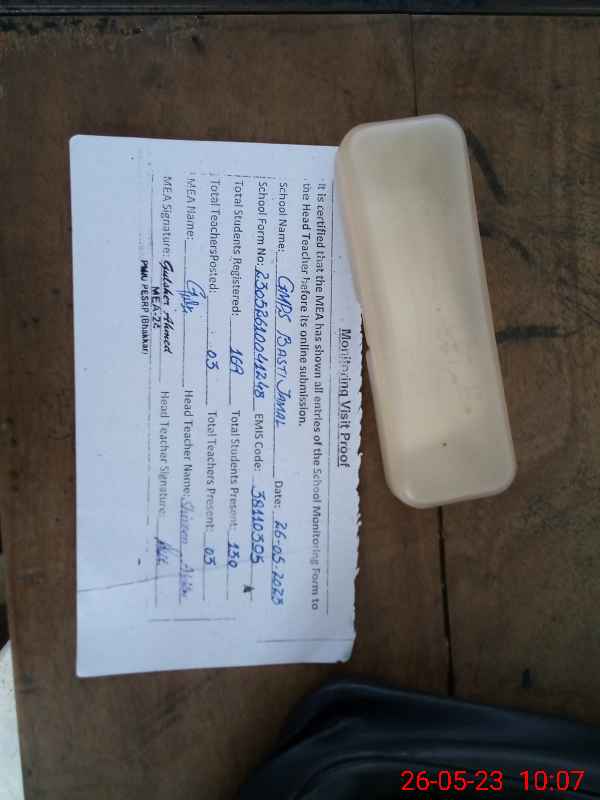 Monitoring Visit Proof
It is certified that the MEA has shown all entries of the School Monitoring Form to
the Head Teacher before its online submission.
School Name: GMPS BASTI JAMAL Date: 26-05-2023
School Form No: 23052610041248 EMIS Code: 38110395
Total Students Registered: 169 Total Students Present: 130
Total TeachersPosted: 03 Total Teachers Present: 03
MEA Name: Head Teacher Name:
MEA Signature: Gulsher Ahmed Head Teacher Signature:
MEA-22
PMU PESRP (Bhakkar)
26-05-23 10:07